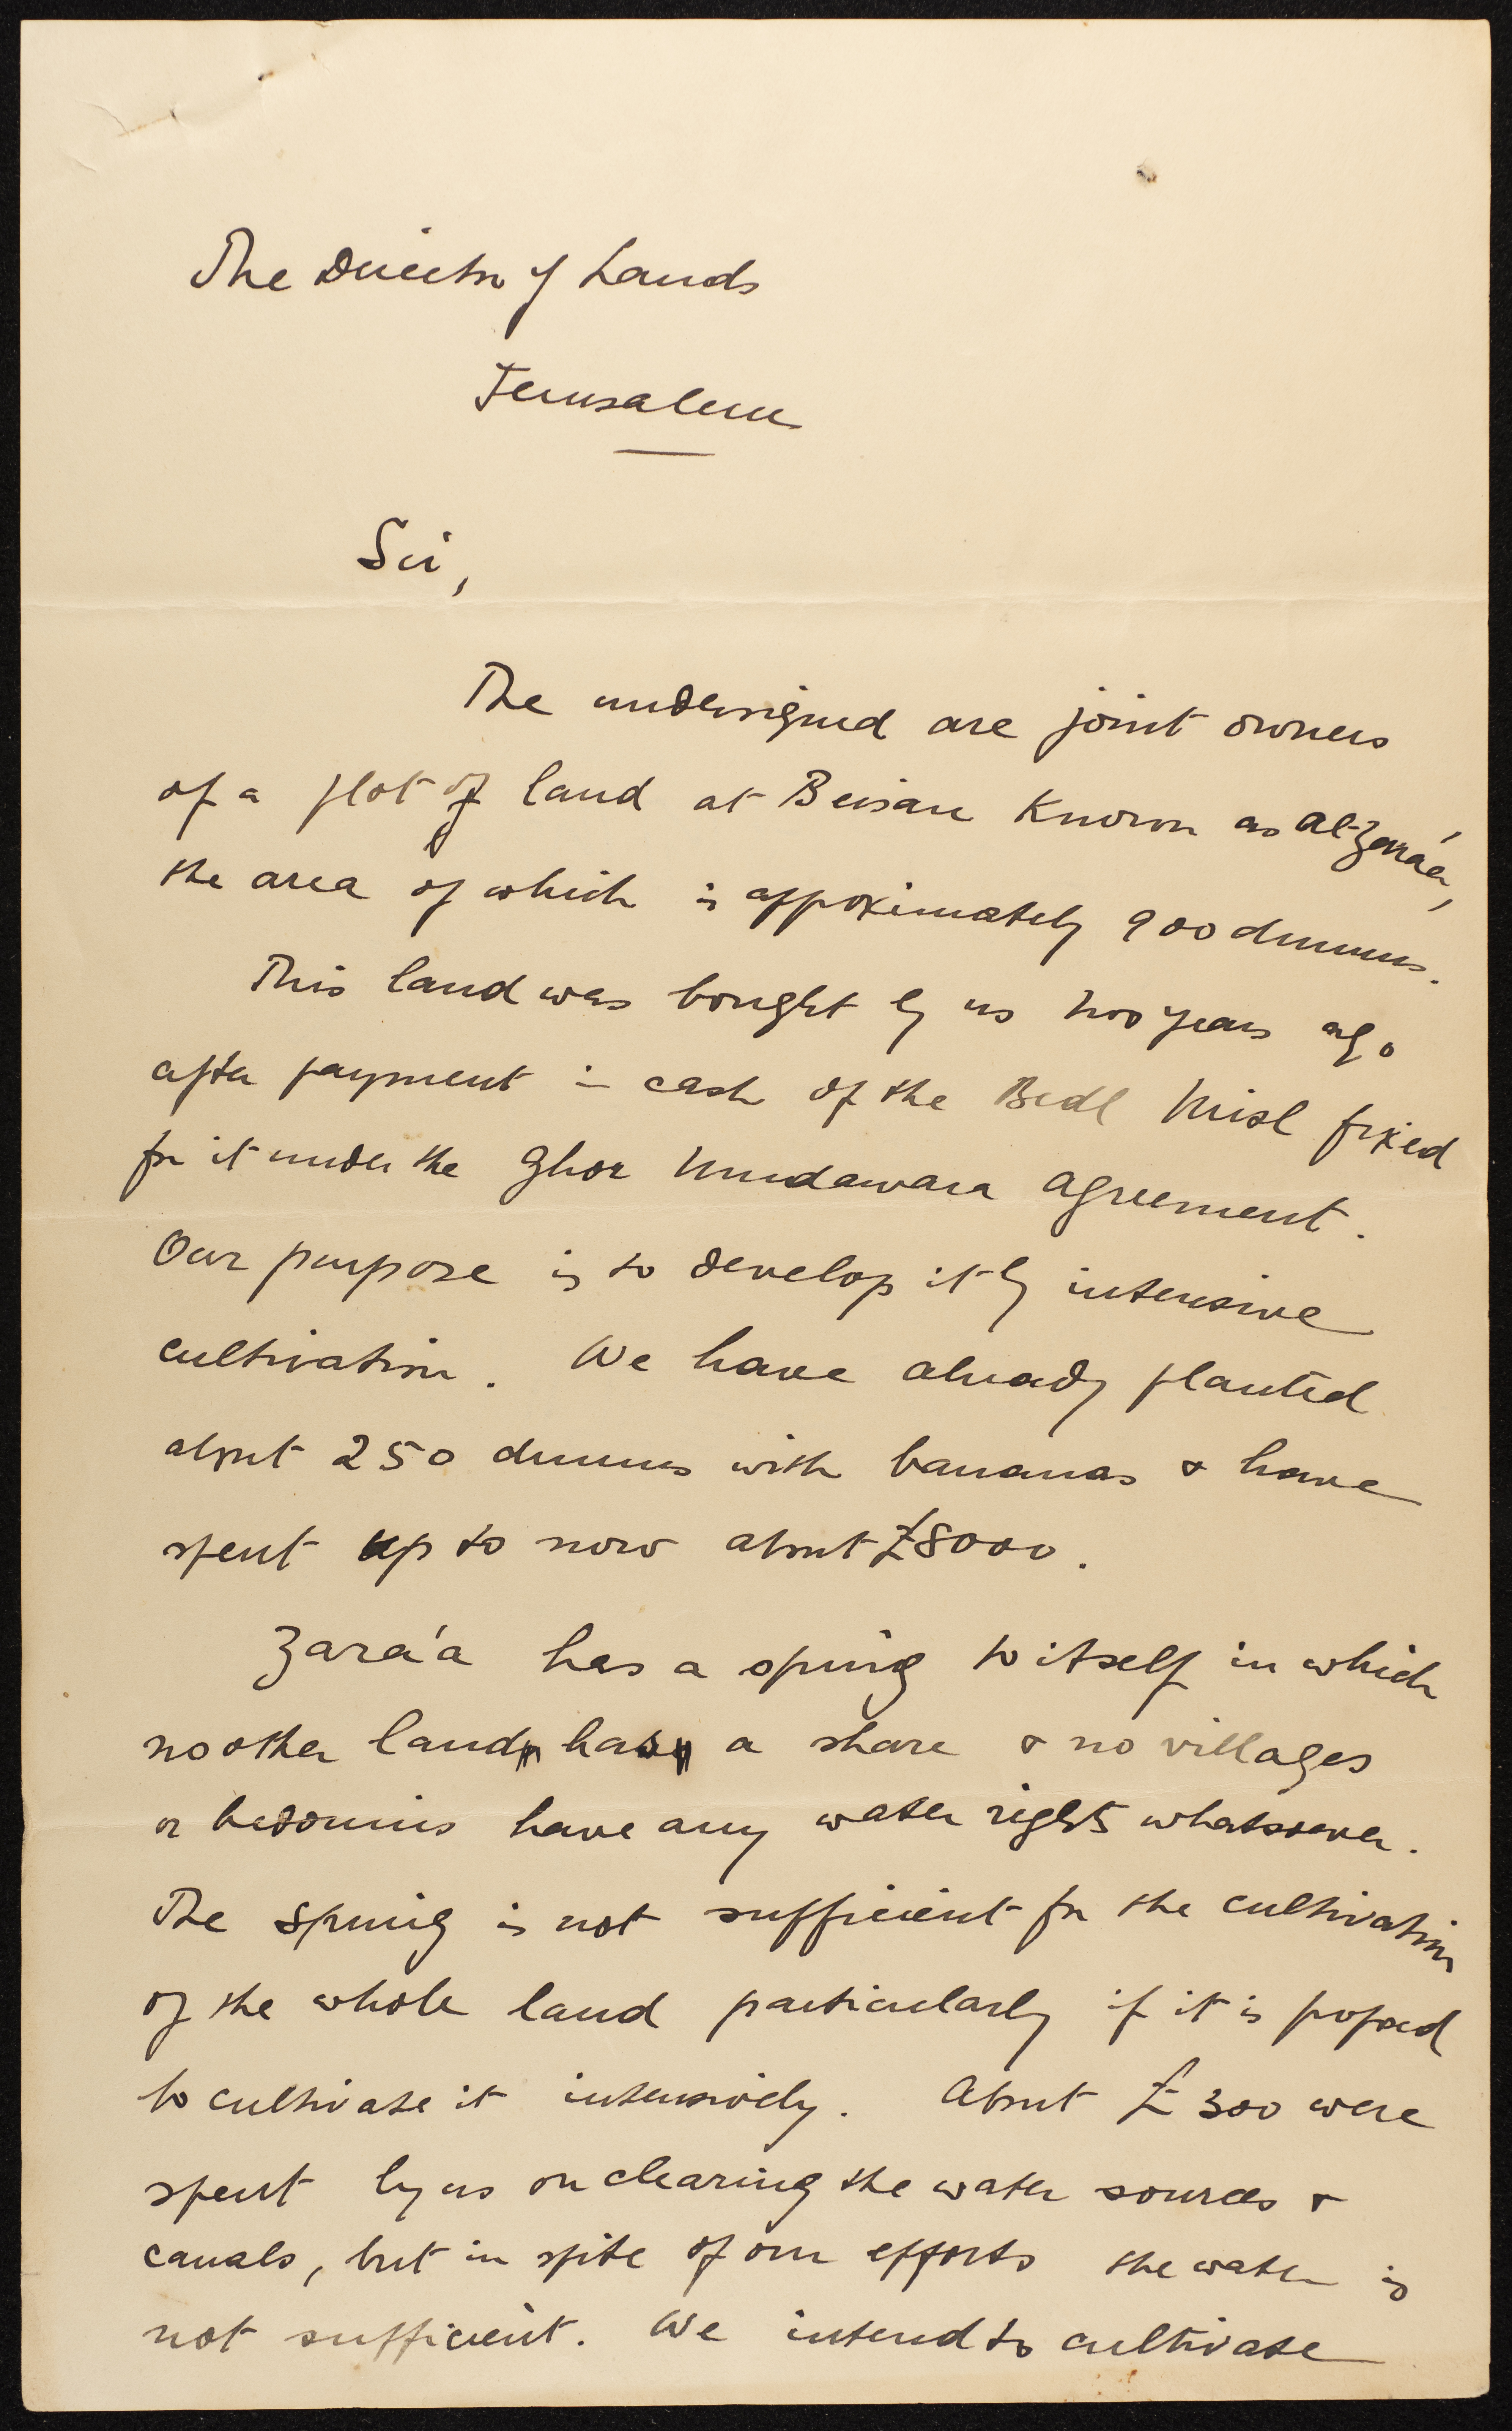 The Director of Lands
Jerusalem
Sir,
The undersigned are joint owners
of a plot of land at Beisan known as al-Zara'a,
the area of which is approximately 900 dunums.
This land was bought by us two years ago
after payment in cash of the Bedl Misl fixed
for it under the Ghor Mudawara agreement.
Our purpose is to develop it by intensive
cultivation. We have already planted
about 250 dunums with bananas & have
spent up to now about £8000.
Zara'a has a spring to itself in which
no other land has a share & no villages
or bedouins have any water rights whatsoever.
The spring is not sufficient for the cultivation
of the whole land particularly if it is proposed
to cultivate it intensively. About £300 were
spent by us on clearing the water sources &
canals, but in spite of our efforts the water is
not sufficient. We intend to cultivate